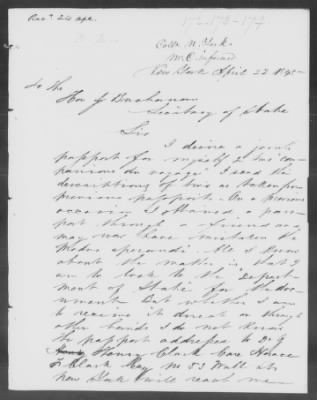 Rec'd 24 Apl.
172-173-174
Coll. N. York
M. C. informed
New York April 22 1845
To The
Hon J Buchanan
Secretary of State
Sir
I desire a joint
passport for myself & two "com-
pagnons du voyage" I send the
descriptions of two as taken from
previous passports. On a previous
occasion I obtained a pass-
port through a friend and
may now have mistaken the
modus operandi. All I know
about the matter is that I
am to look to the "Depart-
ment of State" for the docu-
ment But whether I am
to receive it direct or through
other hands I do not know
The passport addressed to Dr J
Henry Clark Care Horace
F Clark Esq No 53 Wall St
New York will reach me